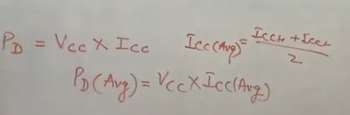 PD = Vcc X Icc    Icc(Avg) = IccH + IccL / 2
PD(Avg) = Vcc X Icc(Avg)